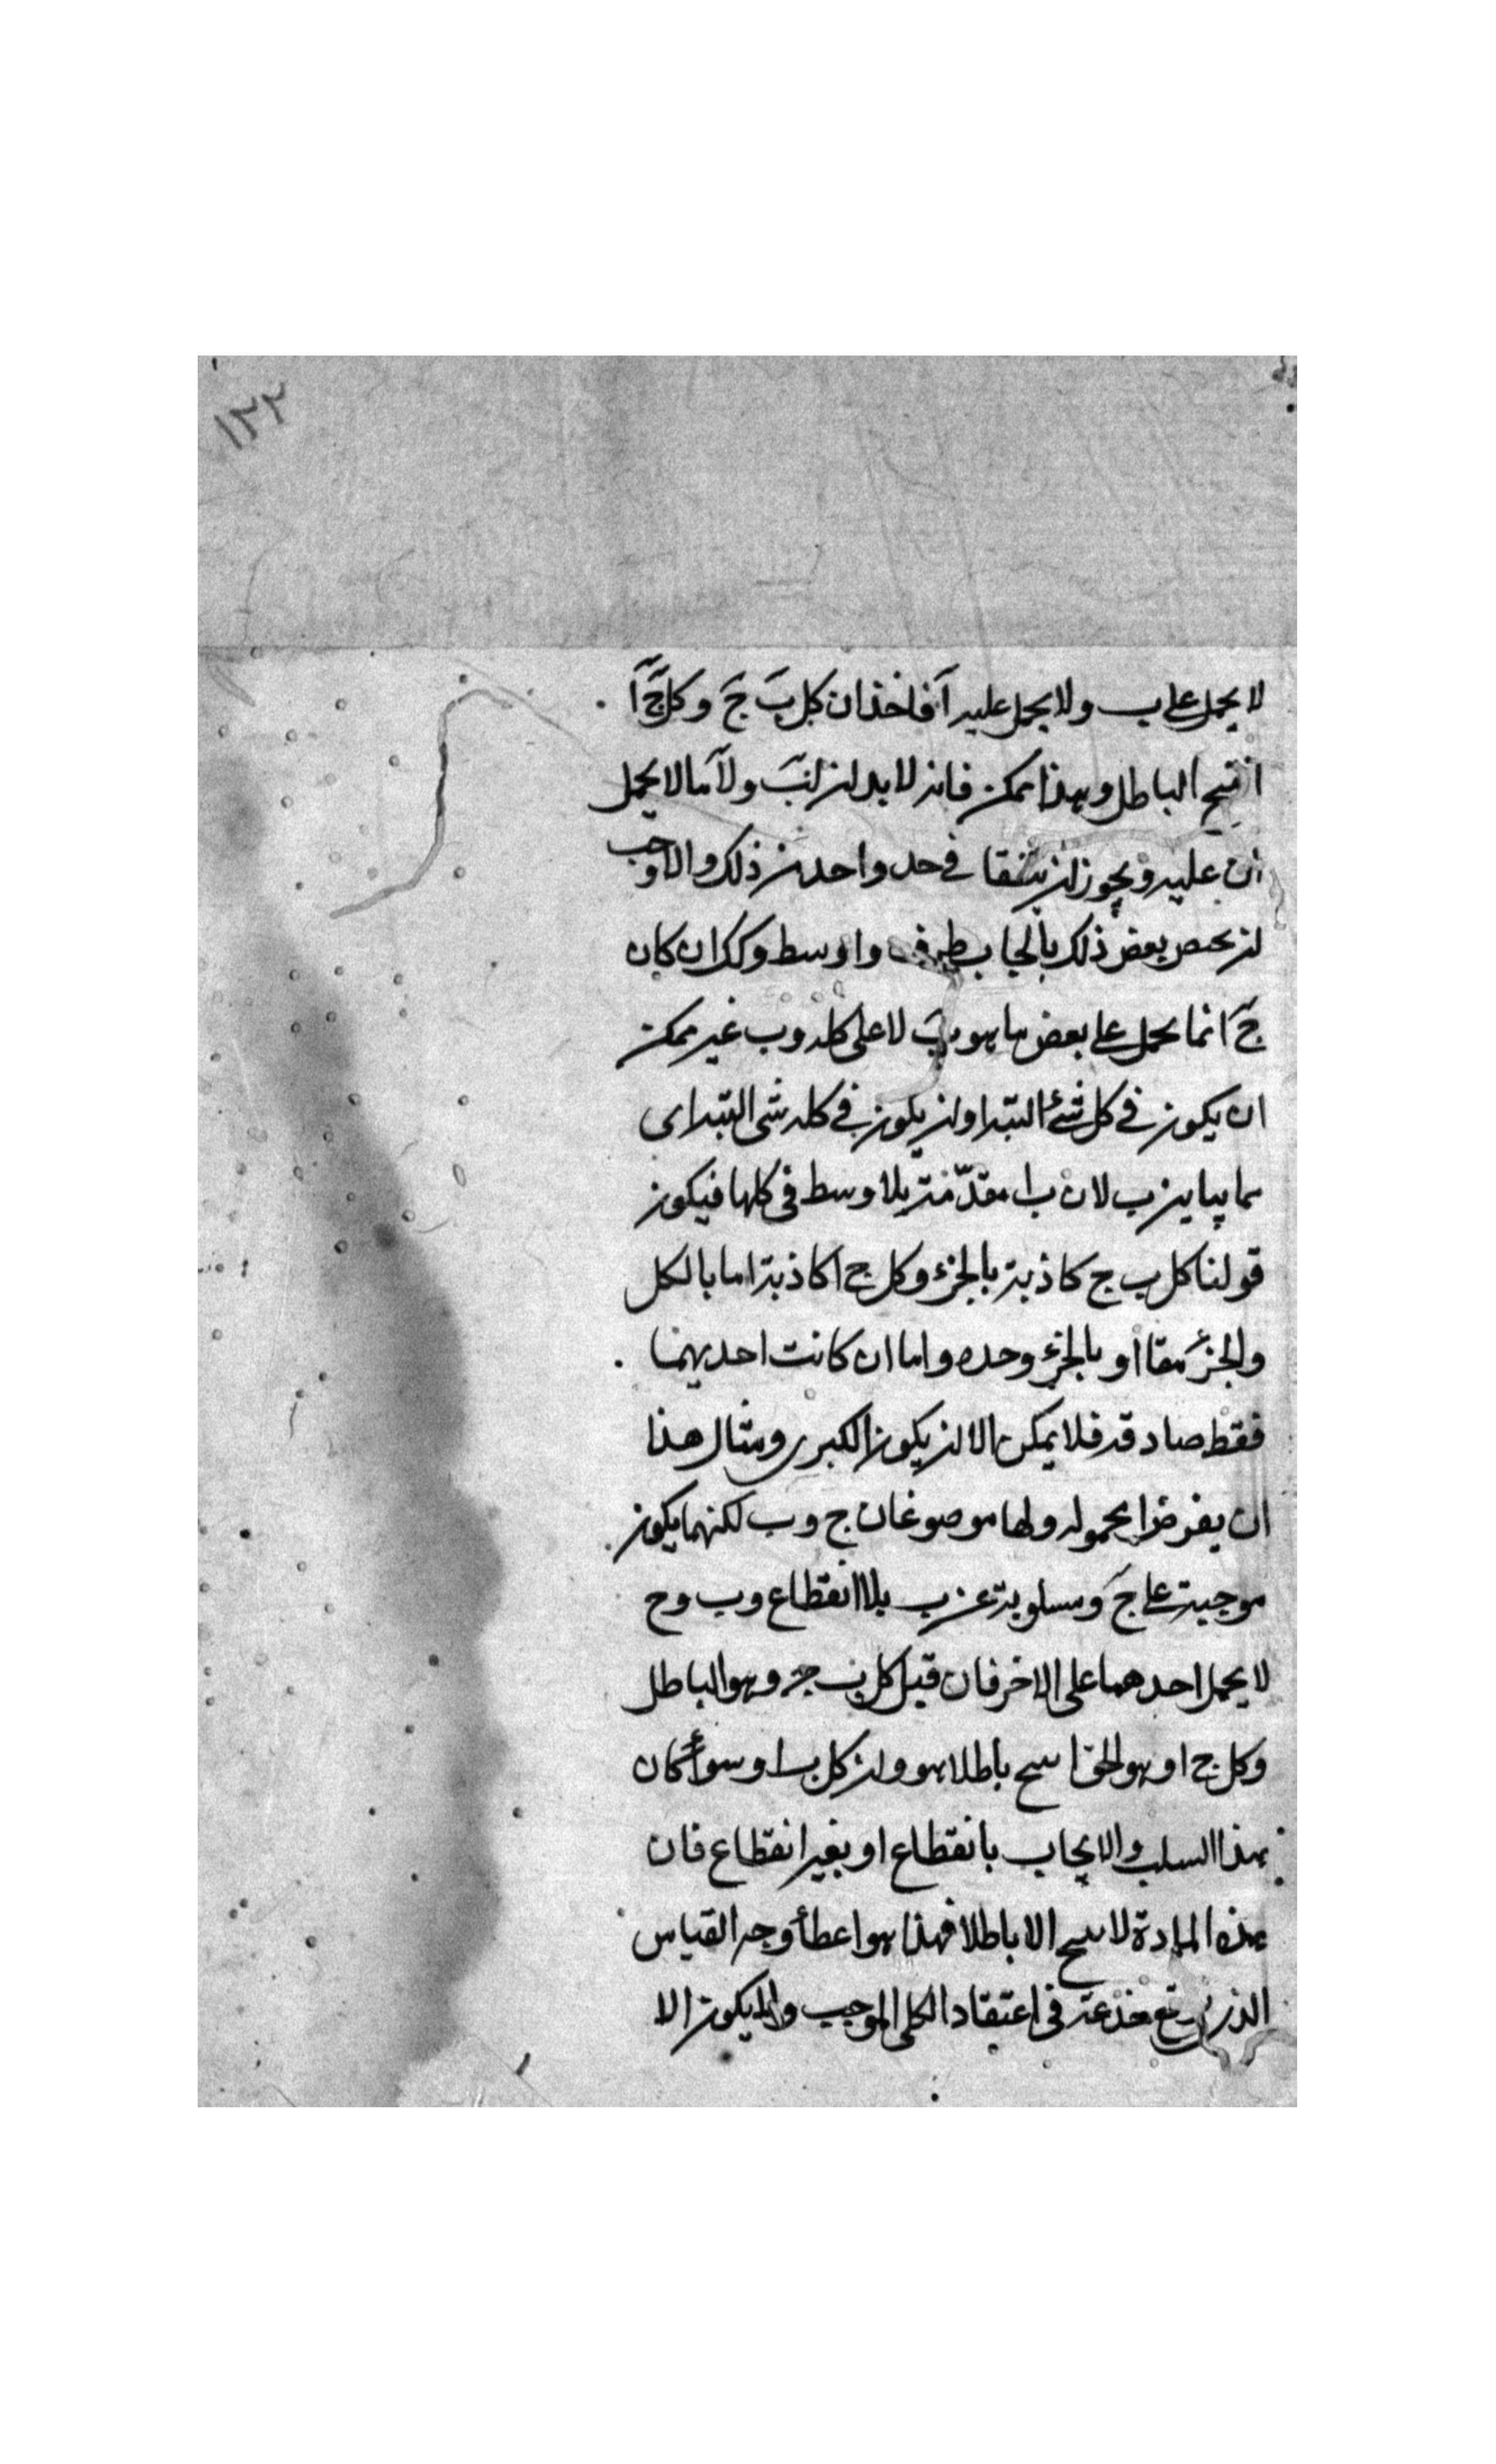 ١٢٢
لا يحمل على ب ولا يحمل عليه آ فاخذ ان كل ب ج وكل ج آ
انتج الباطل وهذا ممكن فانه لا بد لـ ب ولآ ما لا يحمل
ان عليه ويجوز ان يتفقا في حد واحد من ذلك والاوجب
ان بعض ذلك بايجاب طرف واوسط وكك ان كان
ج انما يحمل على بعض ما هو ب لا على كله وب غير ممكن
ان يكون في كل شئ البتة او ان يكون في كله شئ البتة اى
مما يباين ب لان ب ا مقدمة بلا وسط فى كلها فيكون
قولنا كل ب ج كاذبة بالجزء وكل ج ا كاذبة اما بالكل
والجزء معا او بالجزء وحده واما ان كانت احديهما
فقط صادقه فلا يمكن الا ان يكون الكبرى ومثال هذا
ان يفرض ا محموله ولها موضوعان ج وب لكنهما يكون
موجبة على ج ومسلوبة عن ب بلا انقطاع وب وج
لا يحمل احدهما على الاخر فان قيل كل ب ج وهو الباطل
وكل ج ا وهو الحق انتج باطلا هو وان كل ب ا وسواء كان
هذا السلب والايجاب بانقطاع او بغير انقطاع فان
هذه المادة لا ينتج الا باطلا فهذا هو اعطاء وجه القياس
الذى يقع خدعة فى اعتقاد الكلى الموجب ولا يكون الا